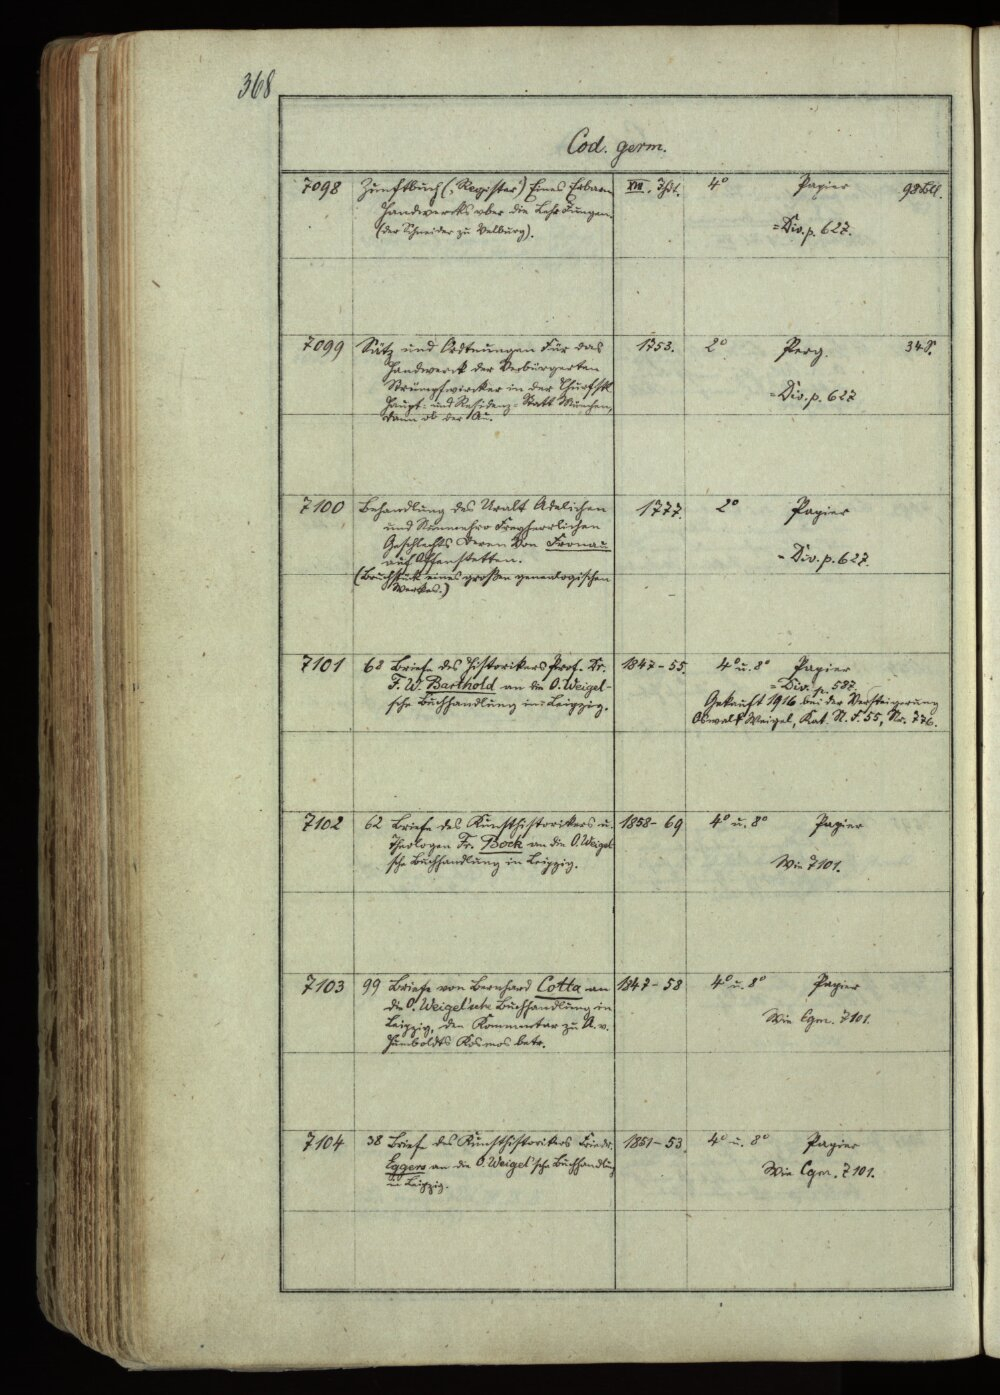 368
Cod. germ.
7098 Zunftbuch („Register“) Eines Erbarn XVII. Jhdt. 4° Papier 98 Bll.
Handwercks über die Lehr Jungen
(der Schneider zu Velburg). = Div. p. 627.
7099 Sätz und Ordtnungen für das 1753. 2° Perg. 34 S.
Handwerck der Verbürgerten
Strümpfwircker in der Churfstl. = Div. p. 627
Haupt- und Residenz-Statt München,
dann ob der Au.
7100 Behandlung des Uralt Adelichen 1777. 2° Papier
und Nunmehro Freyherrlichen
Geschlechts Deren Von Fronau
auf Offenstetten. = Div. p. 627.
(Bruchstück eines großen genealogischen
Werkes.)
7101 68 Briefe des Historikers Prof. Dr. 1847–55. 4° u. 8° Papier
F. W. Barthold an die O. Weigel- = Div. p. 587.
sche Buchhandlung in Leipzig. Gekauft 1916 bei der Versteigerung
Oswalt Weigel, Kat. N. F. 55, Nr. 776.
7102 62 Briefe des Kunsthistorikers u. 1858–69 4° u. 8° Papier
Theologen Fr. Bock an die O. Weigel
sche Buchhandlung in Leipzig. Wie 7101.
7103 99 Briefe von Bernhard Cotta an 1847–58 4° u. 8° Papier
die O. Weigel'sche Buchhandlung in
Leipzig, den Kommentar zu A. v. Wie Cgm. 7101.
Humboldts Kosmos betr.
7104 38 Briefe des Kunsthistorikers Friedr. 1851–53. 4° u. 8° Papier
Eggers an die O. Weigel'sche Buchhandlung Wie Cgm. 7101.
in Leipzig.